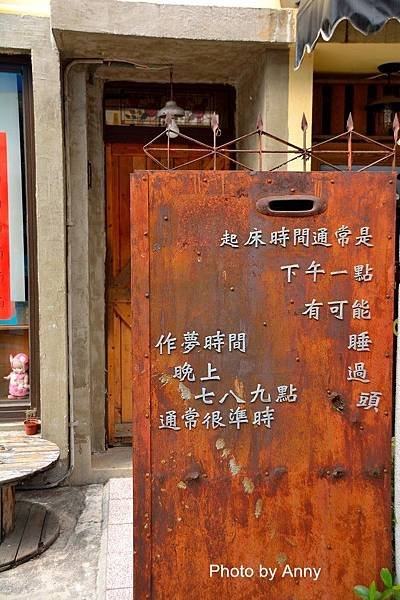 起床時間通常是
下午一點
有可能
睡
過
頭
作夢時間
晚上
七八九點
通常很準時
Photo by Anny